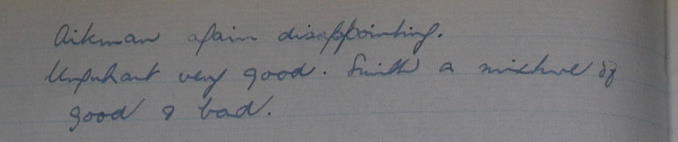 Aikman again disappointing.
Urquhart very good. Smith a mixture of
good & bad.